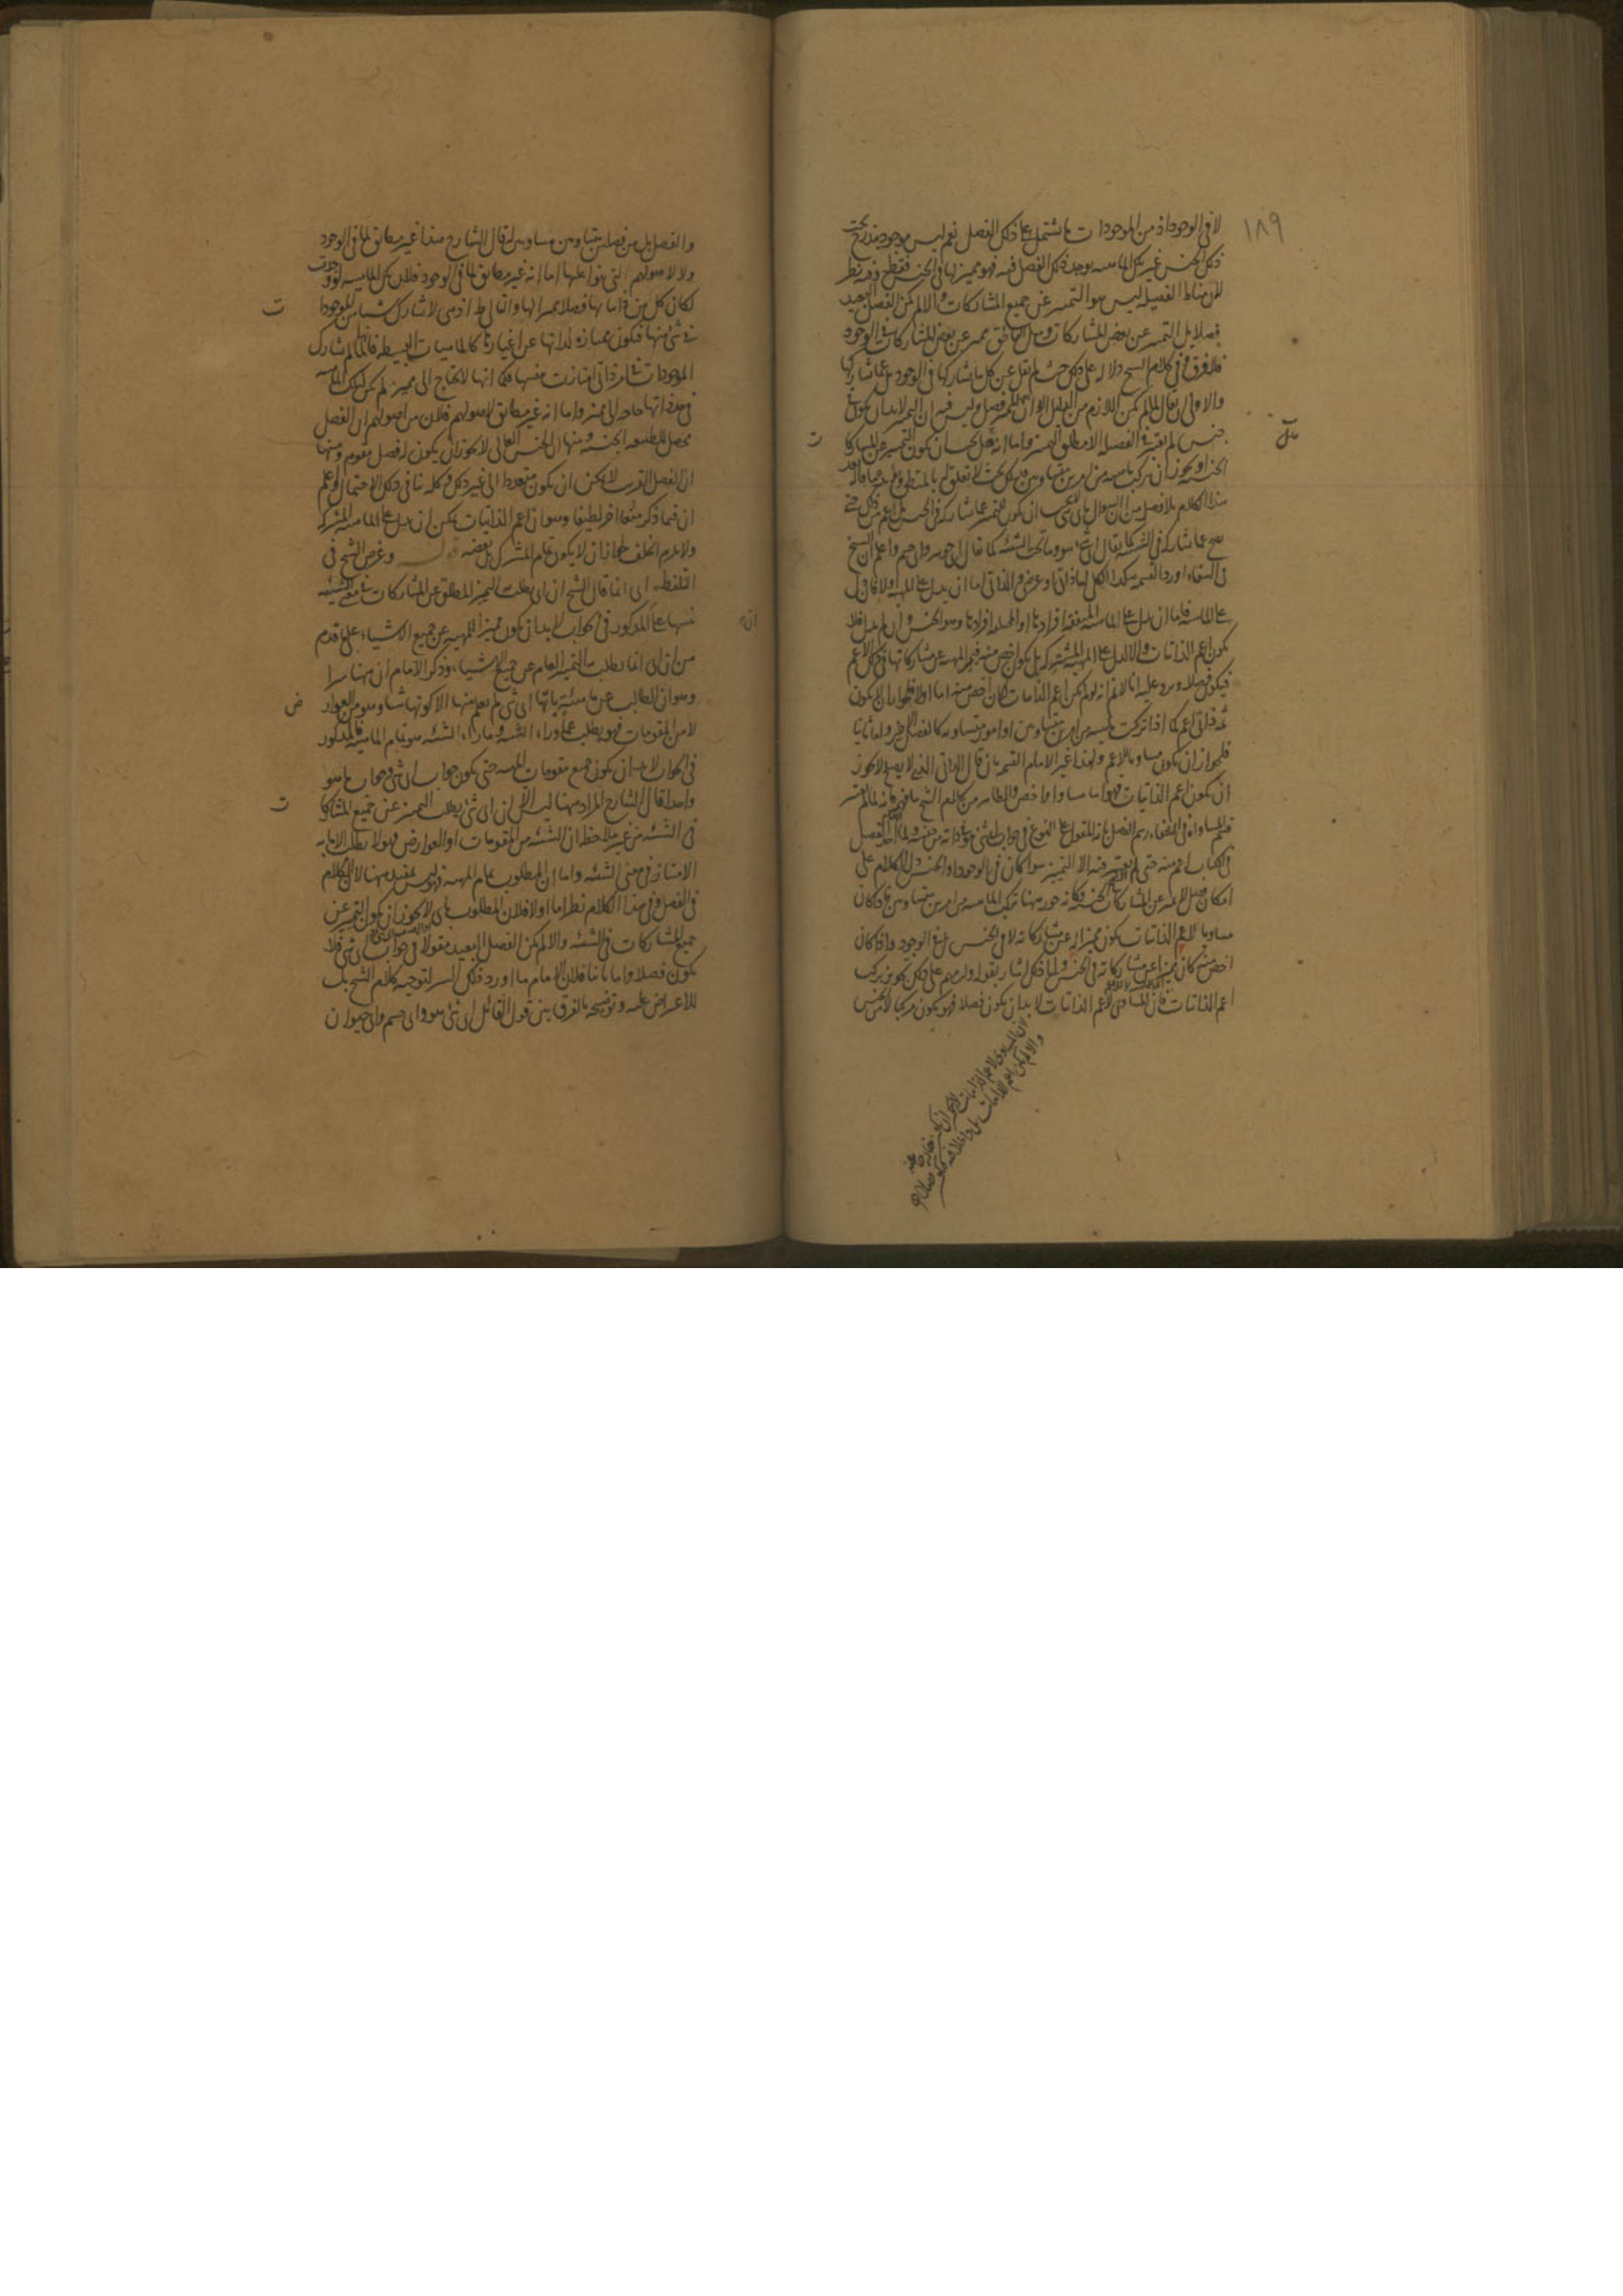 ١٨٩
لا فى الوجود اذ من الموجودات ما يشتمل على ذلك الفصل نعم ليس موجود يندرج تحت
ذلك الجنس غير تلك الماهيه يوجد ذلك الفصل فيه فهو مميز لها فى الجنس فقط وفيه نظر
لان مناط الفصيله ليس هو التميز عن جميع المشاركات والا لم يكن الفصل البعيد
فصلا بل التميز عن بعض المشاركات ومثل الناطق مميز عن بعض المشاركات فى الوجود
فلا فرق وفى كلام الشيخ دلاله على ذلك حيث لم يقل عن كل ما يشاركها فى الوجود بل عما يشاركها
والاولى ان يقال لما لم يكن اللازم من الدليل الا ان المميز فصل وليس فيه ان المميز لا بد ان يكون
جنس لم يعتبر فى الفصل الا مطلق التميز واما انه هل يجب ان يكون التميز عن المشاركا
الجنسيه او يجوز ان تركب ماهيه من امرين متساويين فذلك بحث لا يتعلق بالمنطق
هذا الكلام بلا فصل بين ان السؤال باى شىء يجب ان يكون للتميز عما يشاركه فى الجنس بل اعم من ذلك حتى
يصح عما يشاركه فى الشيئيه كما يقال اى شىء هو وما تحت الشيئيه كما يقال اى جوهر واى جسم واعلم ان الشيخ
فى الشفاء اورد القسمه هكذا الكلى اما ذاتى او عرضى والذاتى اما ان يدل على الماهيه اولا فان دل
على الماهيه فاما ان يدل على الماهيه المتفقه افرادها او المختلفه افرادها وهو الجنس وان لم يدل فلا
يكون اعم الذاتيات والا لدل على المهيه المشتركه بل يكون اخص منه فيميز المهيه عن مشاركاتها فى ذلك الاعم
فيكون فصلا ويرد عليه انا لا نم انه لو لم يكن اعم الذاتيات لكان اخص منه اما اولا فلجواز ان لا يكون
ثمه ذاتى اعم كما اذا تركبت ماهيه من امرين متساويين او امور متساويه كالفصل الاخير واما ثانيا
فلجواز ان يكون مساويا للاعم ولهذا غير الامام القسمه بان قال الذاتى الذى لا يصلح لا يجوز
ان يكون اعم الذاتيات فهو اما مساو او اخص والظاهر من كلام الشيخ
قسم المساواه فى الشفاء رسم الفصل بانه المقول على النوع فى جواب اى شىء هو فى ذاته من جنسه ولما اخذ الفصل
فى الكتاب اعم منه حتى لم يعتبر فيه الا التميز سواء كان فى الوجود او الجنس دل الكلام على
امكان فصل لا يميز عن المشاركات الجنسيه وكانه جوز ههنا تركب الماهيه من امرين متساويين فاذا كان
مساويا لاعم الذاتيات يكون مميزا له عن مشاركاته لا فى الجنس بل فى الوجود واذا كان
اخص منه كان مميزا عن مشاركاته فى الجنس والى ذلك اشار بقوله ولزمهم على ذلك تجويز تركب
اعم الذاتيات فان المساوى لاعم الذاتيات لا بد ان يكون فصلا فهو يكون مركبا لا من الجنس
والفصل بل من فصلين متساويين مساويين له قال الشارح هذا غير مطابق لما فى الوجود
ولا لاصولهم التى بنوا عليها اما انه غير مطابق لما فى الوجود فلان تلك الماهيه لو وجدت
لكان كل من ذاتياتها فصلا مميزا لها والتالى بط اذ هى لا تشارك شيئا من الموجودا
ت
فى شىء منها فتكون ممتازه لذاتها عن اغيارها كالماهيات البسيطه فانها لما لم تشارك
الموجودات فى امر ذاتى امتازت بنفسها فكما انها لا تحتاج الى مميز لم يكن لتلك الماهيه
فى حد ذاتها حاجه الى مميز واما انه غير مطابق لاصولهم فلان من اصولهم ان الفصل
محصل للطبيعه الجنسيه ومنها ان الجنس العالى لا يجوز ان يكون له فصل مقوم ومنها
ان الفصل القريب لا يمكن ان يكون متعددا الى غير ذلك وكله ينافى ذلك الاحتمال واعلم
ان فيما ذكر منعا اخر لطيفا وهو ان اعم الذاتيات يمكن ان لا يدل على الماهيه المشتركه
ولا يلزم الخلف لجواز ان لا يكون تمام المشترك بل بعضه قوله وغرض الشيخ فى
التلفظ اى انما قال الشيخ ان اى يطلب التميز المطلق عن المشاركات فى معنى الشيئيه
تنبيها على ان المذكور فى الجواب لا بد ان يكون مميزا للمهيه عن جميع الاشياء على ما تقدم
من ان اى انما يطلب به التميز العام عن جميع الاشياء وذكر الامام ان ههنا سرا
وهو ان الطالب عن ماهيه باتها اى شىء لم يعلم منها الا كونها شيئا وهو من العوار
ض
لا من المقومات فهو يطلب بما وراء الشيئيه وما وراء الشيئيه هو تمام الماهيه فالمذكور
فى الجواب لا بد ان يكون جميع مقومات المهيه حتى يكون جواب اى شىء وجواب ما هو
واحدا قال الشارح المراد ههنا ليس الا ان اى شىء يطلب التميز عن جميع المشاركا
ت
فى الشيئيه من غير ملاحظه ان الشيئيه من المقومات او العوارض فهو لا يطلب الا ما به
الامتياز فى معنى الشيئيه واما ان المطلوب تمام المهيه فهو ليس بمفيد ههنا لان الكلام
فى الفصل وفى هذا الكلام نظر اما اولا فلان المطلوب باى لا يجوز ان يكون التميز عن
جميع المشاركات فى الشيئيه والا لم يكن الفصل البعيد مقولا فى جواب اى شىء فلا
يكون فصلا واما ثانيا فلان الامام ما اورد ذلك السر لتوجيه كلام الشيخ بل
للاعتراض عليه وتوضيحه بالفرق بين قول القائل اى شىء هو واى جسم واى حيوان